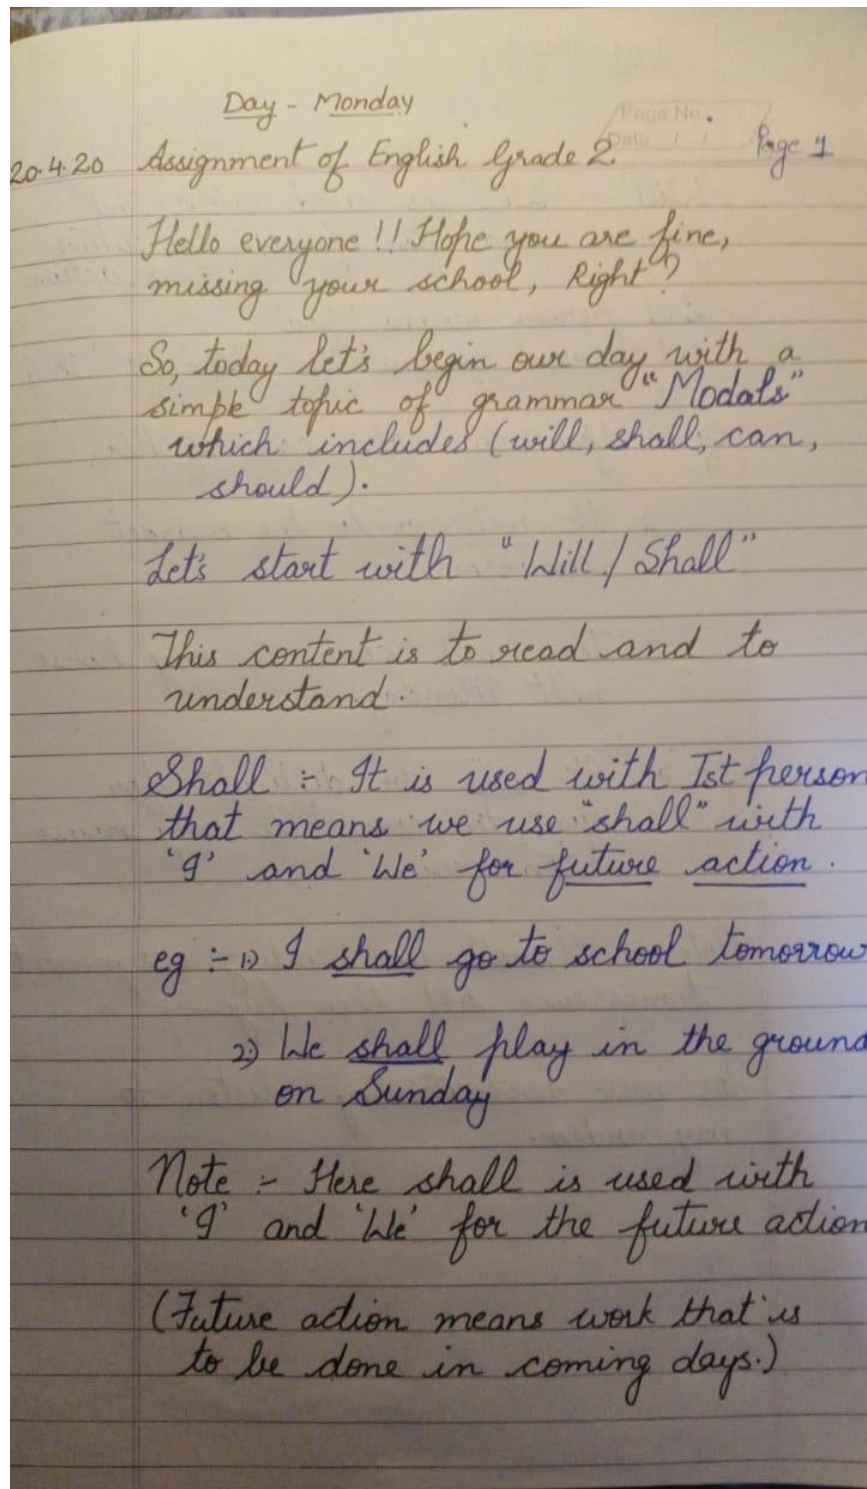 Day - Monday
Page No.
Date / /
Page 1
20.4.20 Assignment of English Grade 2.
Hello everyone !! Hope you are fine,
missing your school, Right?
So, today let's begin our day with a
simple topic of grammar "Modals"
which includes (will, shall, can,
should).
Let's start with "Will / Shall"
This content is to read and to
understand.
Shall :- It is used with Ist person
that means we use "shall" with
'I' and 'We' for future action.
eg :- 1) I shall go to school tomorrow
2) We shall play in the ground
on Sunday
Note :- Here shall is used with
'I' and 'We' for the future action
(Future action means work that is
to be done in coming days.)